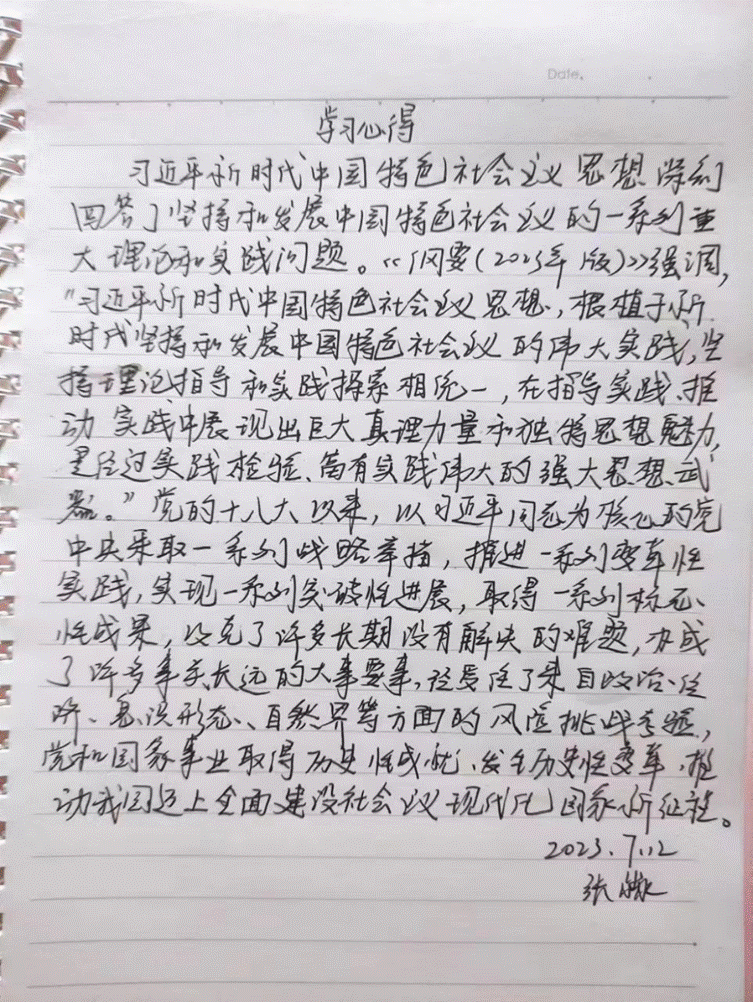 Date.
学习心得
习近平新时代中国特色社会主义思想深刻
回答了坚持和发展中国特色社会主义的一系列重
大理论和实践问题。《纲要(2023年版)》强调,
"习近平新时代中国特色社会主义思想,根植于新
时代坚持和发展中国特色社会主义的伟大实践,坚
持理论指导和实践探索相统一,在指导实践、推
动实践中展现出巨大真理力量和独特思想魅力,
是经过实践检验、富有实践伟大的强大思想武
器。"党的十八大以来,以习近平同志为核心的党
中央采取一系列战略举措,推进一系列变革性
实践,实现一系列突破性进展,取得一系列标志
性成果,攻克了许多长期没有解决的难题,办成
了许多事关长远的大事要事,经受住了来自政治、经
济、意识形态、自然界等方面的风险挑战考验,
党和国家事业取得历史性成就、发生历史性变革,推
动我国迈上全面建设社会主义现代化国家新征程。
2023.7.12
张